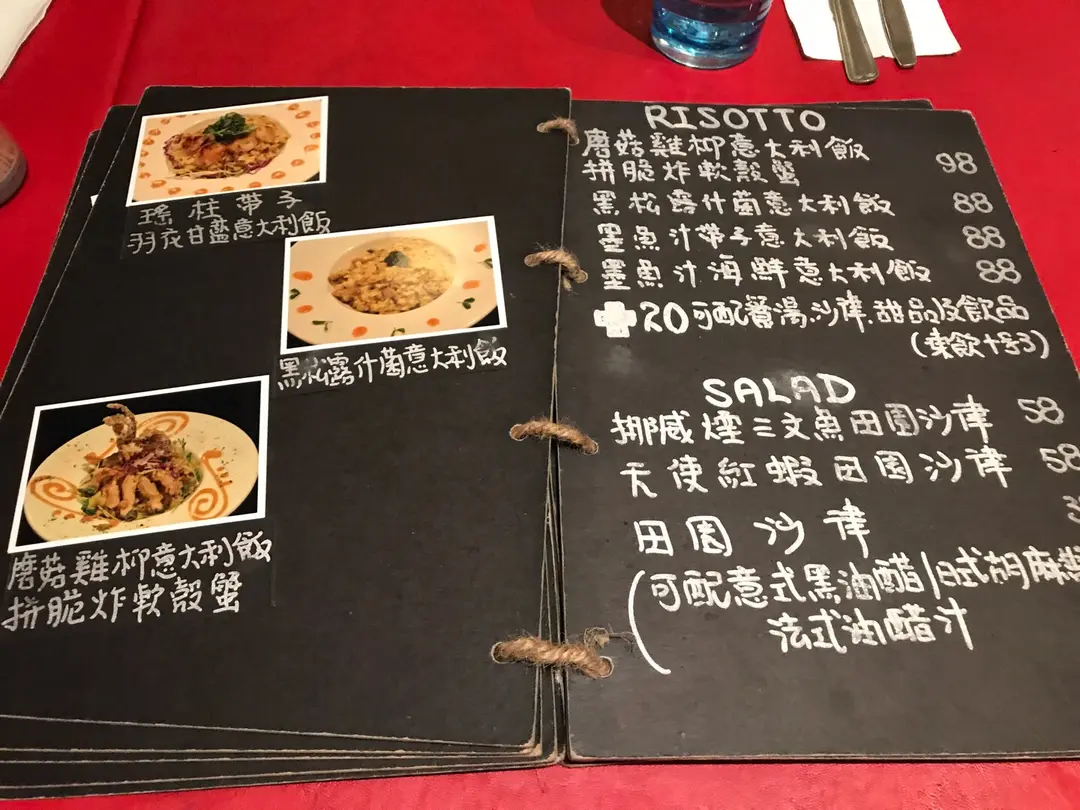 瑤柱帶子
羽衣甘藍意大利飯
黑松露什菌意大利飯
磨菇雞柳意大利飯
拼脆炸軟殼蟹
RISOTTO
磨菇雞柳意大利飯
拼脆炸軟殼蟹 98
黑松露什菌意大利飯 88
墨魚汁帶子意大利飯 88
墨魚汁海鮮意大利飯 88
+20可配餐湯.沙律.甜品及飲品
(凍飲+3)
SALAD
挪威煙三文魚田園沙律 58
天使紅蝦田園沙律 58
田園沙律
(可配意式黑油醋/日式胡麻醬
法式油醋汁